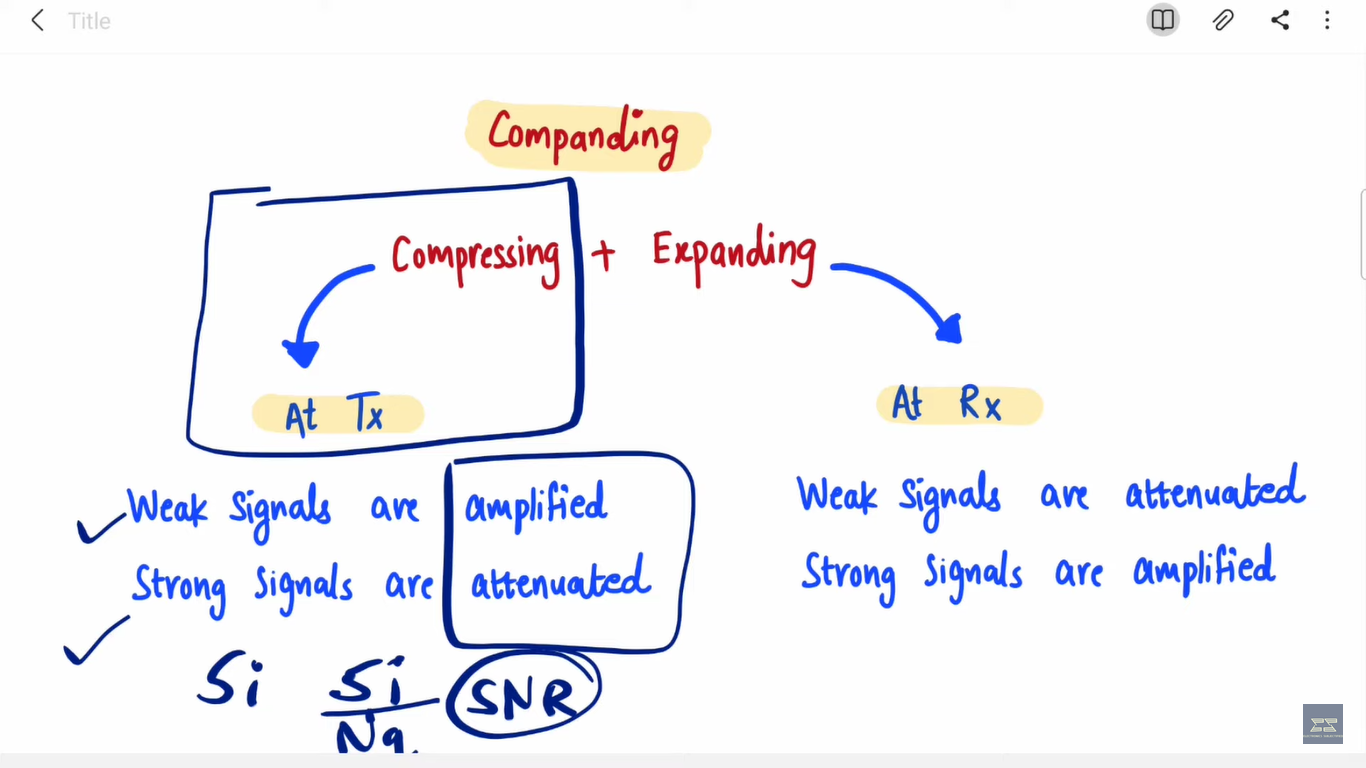 Title
Companding
Compressing + Expanding
At Tx
At Rx
Weak Signals are amplified
Strong Signals are attenuated
Weak Signals are attenuated
Strong Signals are amplified
Si Si SNR
Nq